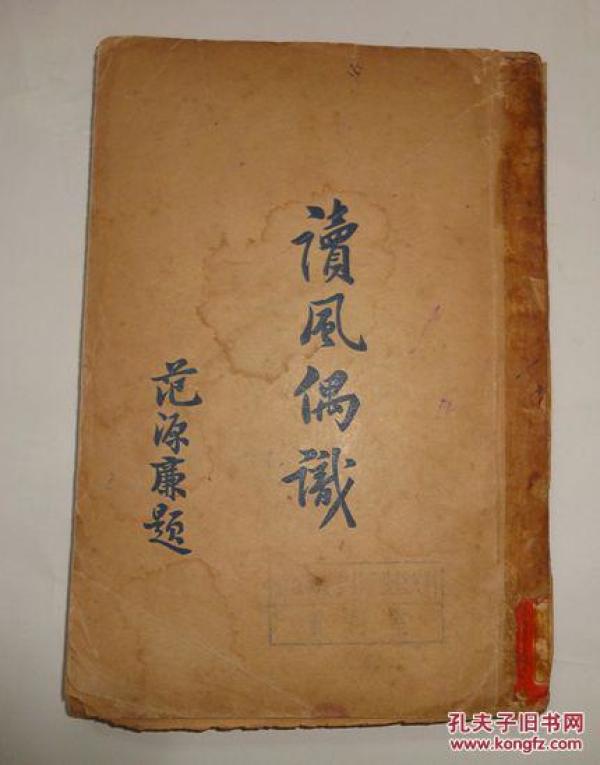 讀風偶識
范源廉題
孔夫子旧书网
www.kongfz.com